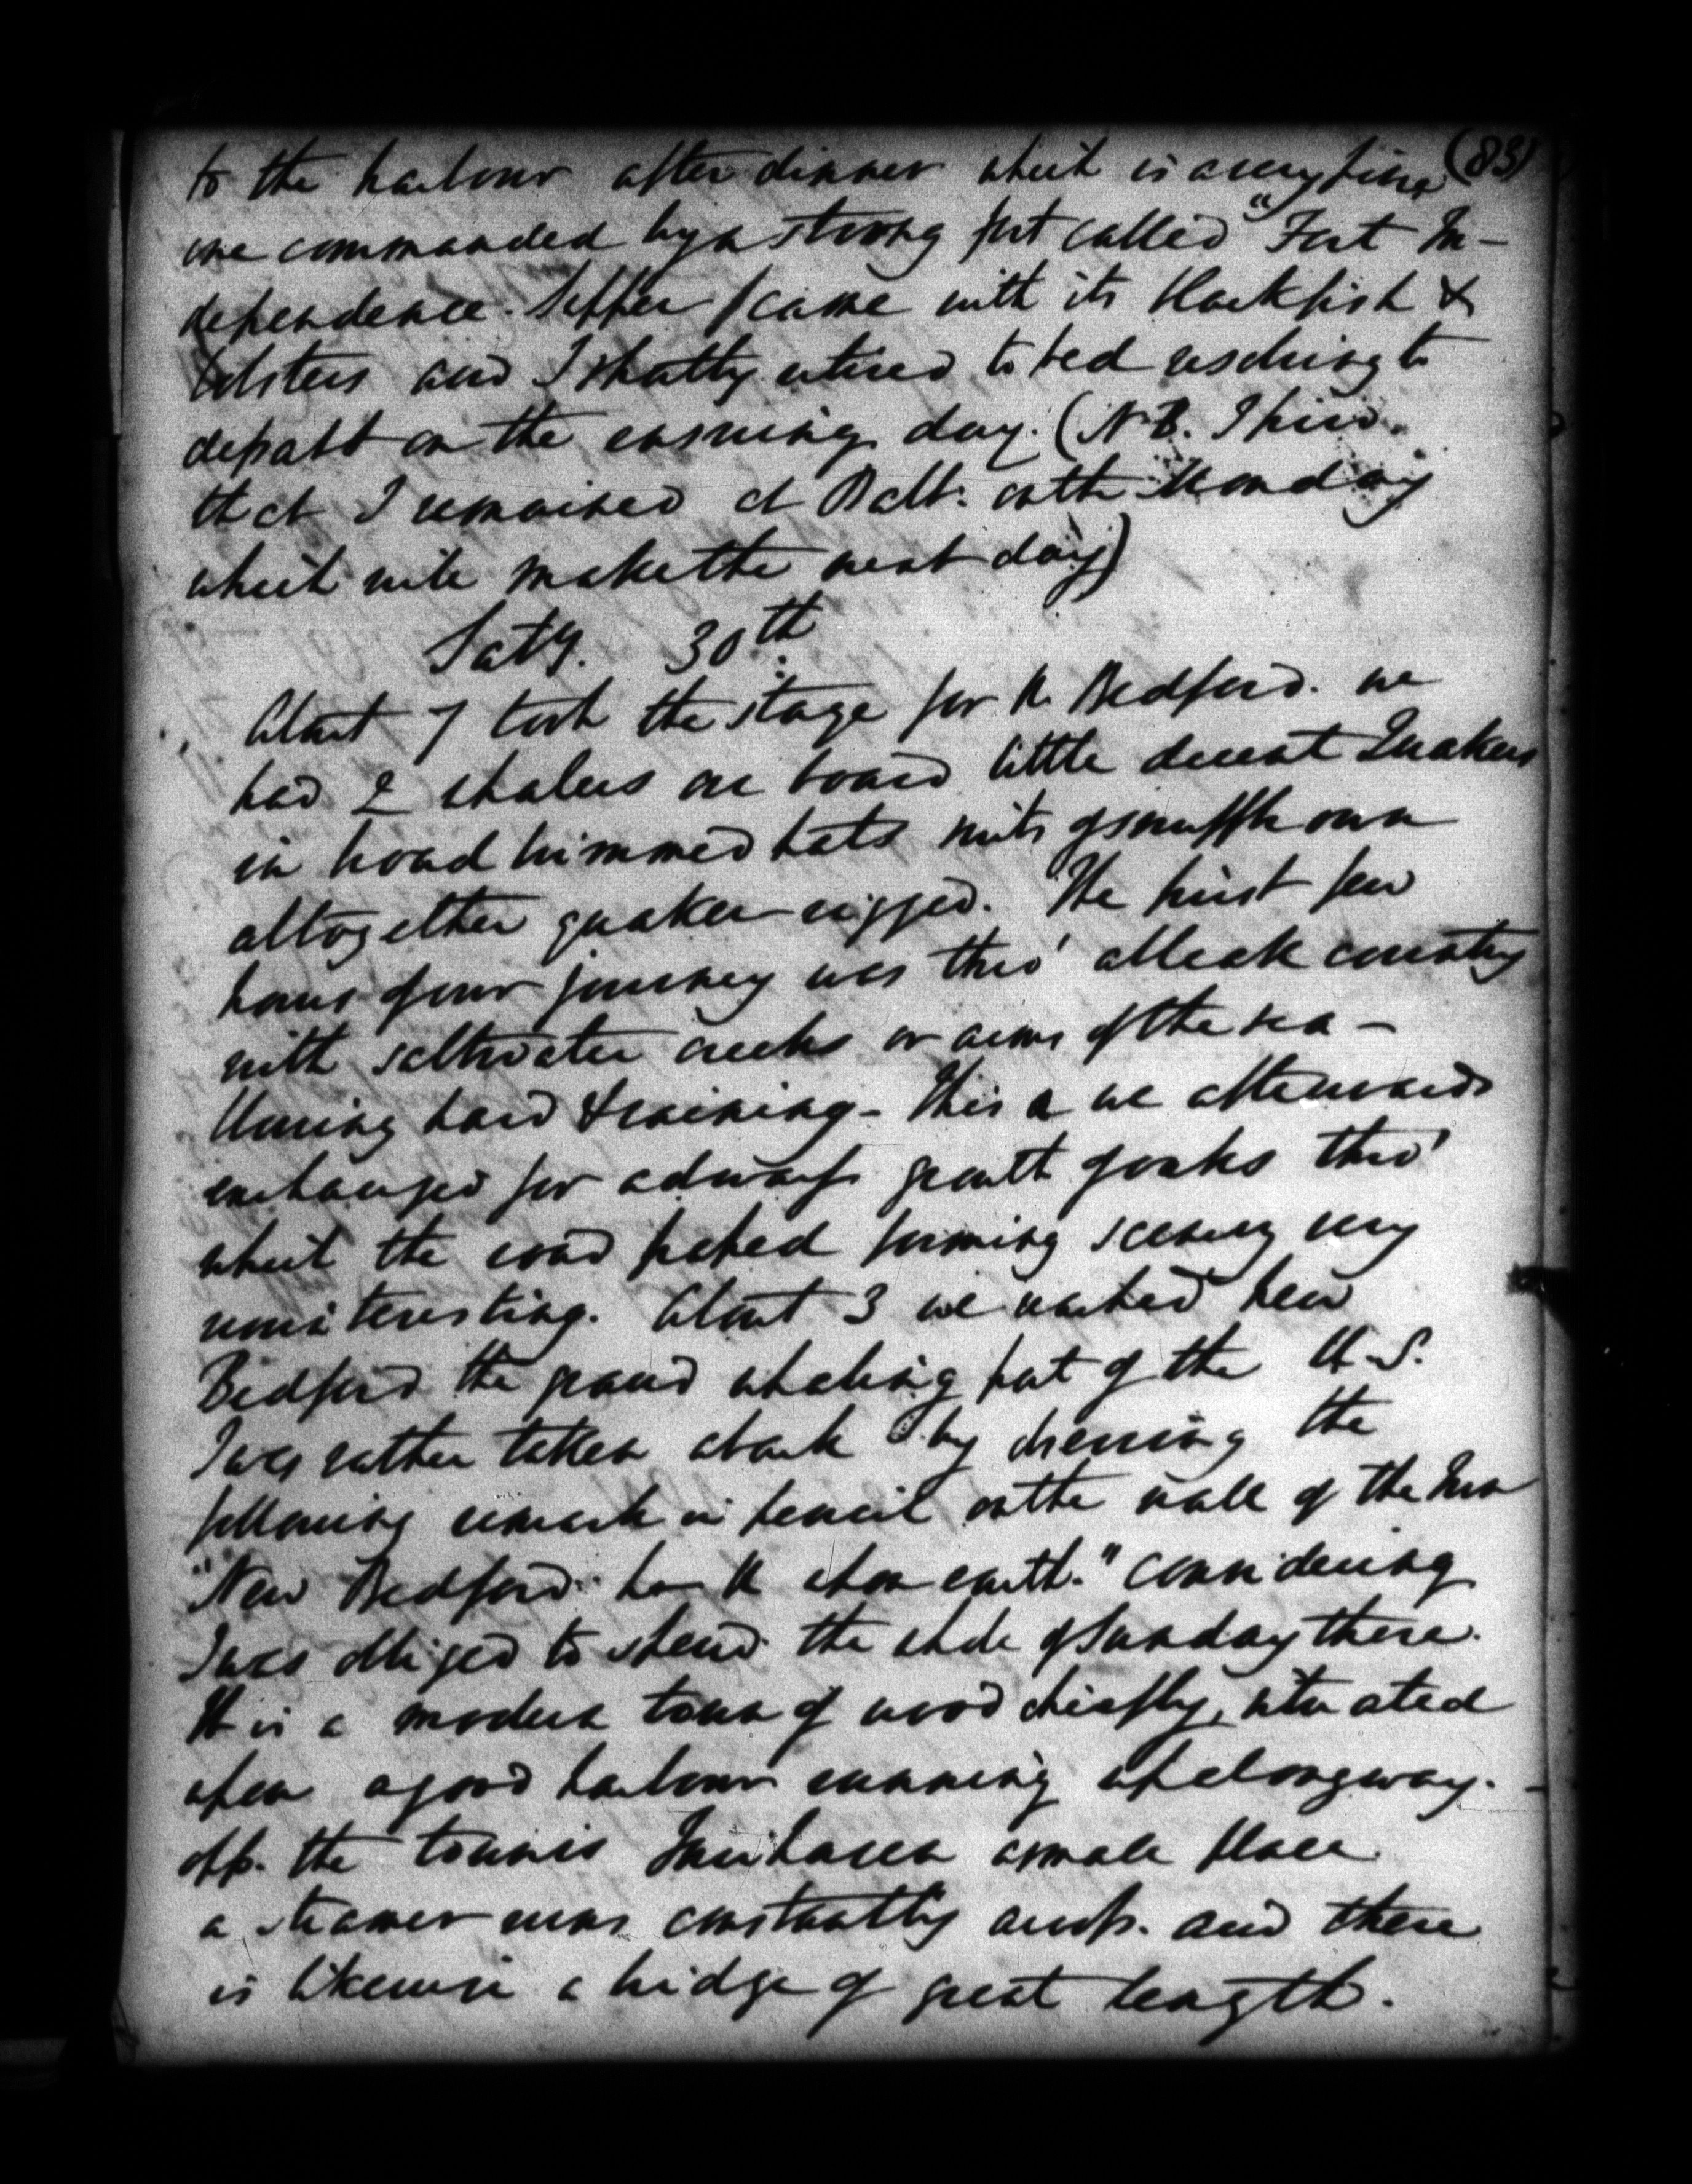 (83)
to the harbour after dinner which is a very fine
one commanded by a strong fort called "Fort In-
dependence. Supper came with its blackfish &
lobsters and I shortly retired to bed resolving to
depart on the ensuing day. (N.B. I find
that I remained at Balt. on the Monday
which will make the next day)
Saty. 30th
About 7 took the stage for N. Bedford. we
had 2 whalers on board little decent Quakers
in broad brimmed hats suits of snuff brown
altogether quaker-rigged. The first few
hours of our journey was thro' a bleak country
with saltwater creeks or arms of the sea -
blowing hard & raining - This we afterwards
exchanged for a dwarf growth of oaks thro'
which the road passed forming scenery very
uninteresting. About 3 we reached New
Bedford the grand whaling port of the U.S.
I was rather taken aback by observing the
following remark in pencil on the wall of the Inn
"New Bedford upon earth." considering
I was obliged to spend the whole of Sunday there.
It is a modern town of wood chiefly, situated
upon a good harbour running up a long way.
opp. the town is Fairhaven a small place
a steamer runs constantly across. and there
is likewise a bridge of great length.